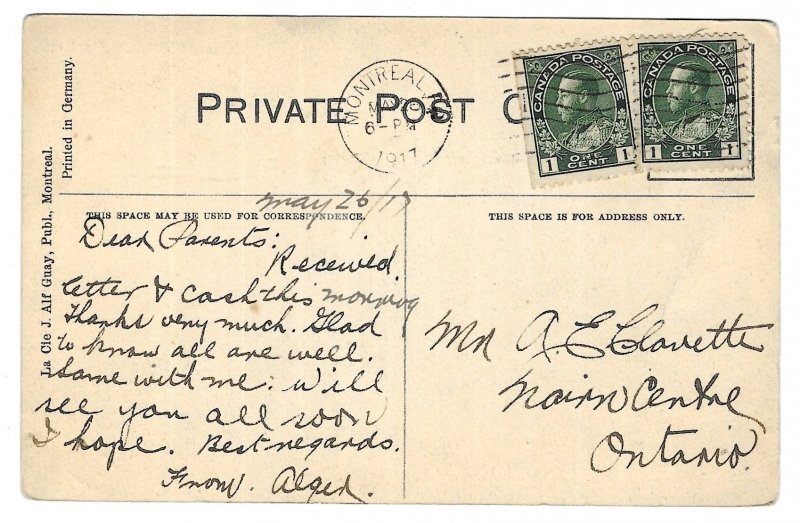 PRIVATE POST C
MONTREAL
MAY 26
6-PM
1917
CANADA POSTAGE
1 ONE CENT 1
CANADA POSTAGE
1 ONE CENT 1
Printed in Germany.
La Cie J. Alf Guay, Publ., Montreal.
May 26/17
THIS SPACE MAY BE USED FOR CORRESPONDENCE.
Dear Parents:
Received
letter & cash this morning
Thanks very much. Glad
to know all are well.
Same with me. Will
see you all soon
I hope. Best regards.
From. Alger.
THIS SPACE IS FOR ADDRESS ONLY.
Mr A. E Clavette
Nairn Centre
Ontario.